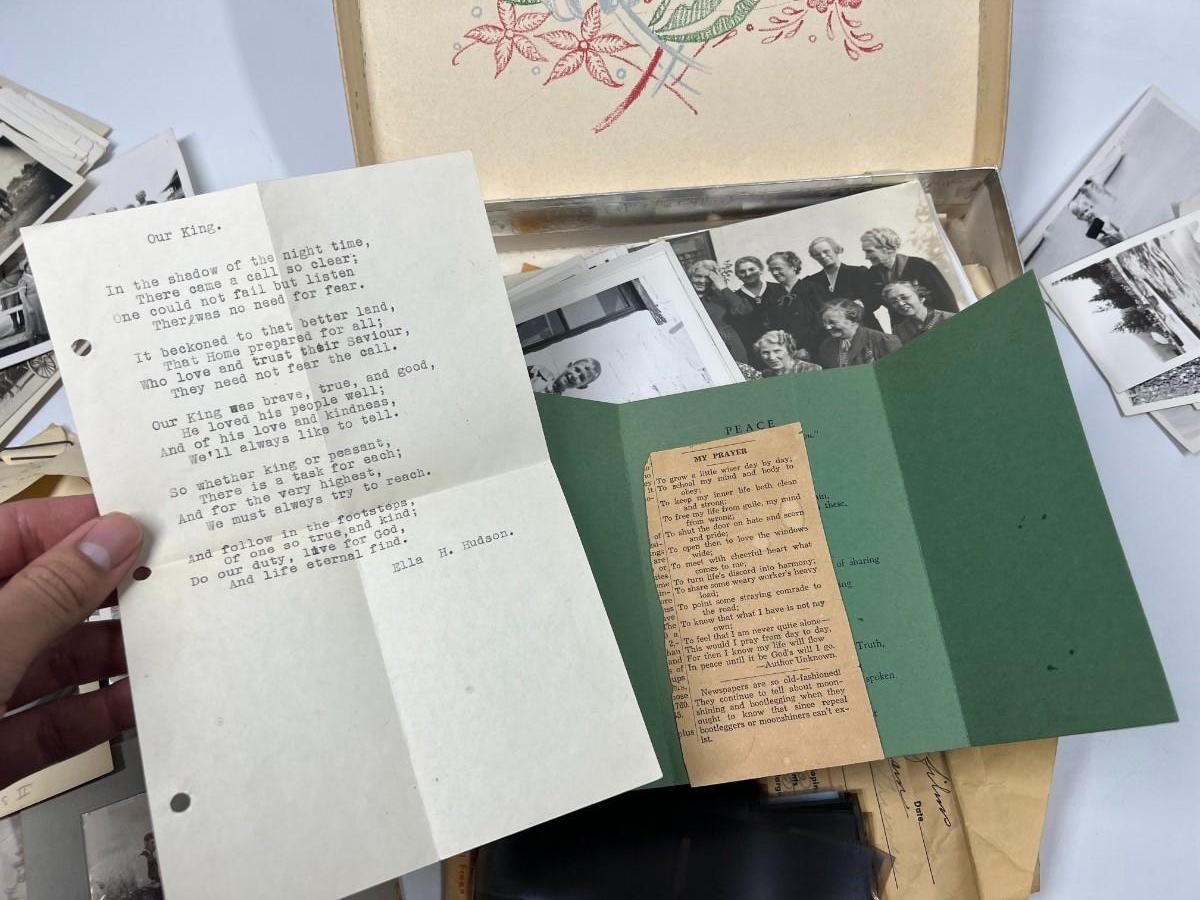 Our King.
In the shadow of the night time,
There came a call so clear;
One could not fail but listen
Therewas no need for fear.
It beckoned to that better land,
That Home prepared for all;
Who love and trust their Saviour,
They need not fear the call.
Our King was brave, true, and good,
He loved his people well;
And of his love and kindness,
We'll always like to tell.
So whether king or peasant,
There is a task for each;
And for the very highest,
We must always try to reach.
And follow in the footsteps,
Of one so true,and kind;
Do our duty, live for God,
And life eternal find.
Ella H. Hudson.
PEACE
these,
of sharing
Truth,
spoken.
MY PRAYER
To grow a little wiser day by day;
To school my mind and body to
obey;
To keep my inner life both clean
and strong;
To free my life from guile, my mind
from wrong;
To shut the door on hate and scorn
and pride;
To open then to love the windows
wide;
To meet with cheerful heart what
comes to me;
To turn life's discord into harmony;
To share some weary worker's heavy
load;
To point some straying comrade to
the road;
To know that what I have is not my
own;
To feel that I am never quite alone—
This would I pray from day to day,
For then I know my life will flow
In peace until it be God's will I go.
—Author Unknown.
Newspapers are so old-fashioned!
They continue to tell about moon-
shining and bootlegging when they
ought to know that since repeal
bootleggers or moonshiners can't ex-
ist.
plus
films
Date